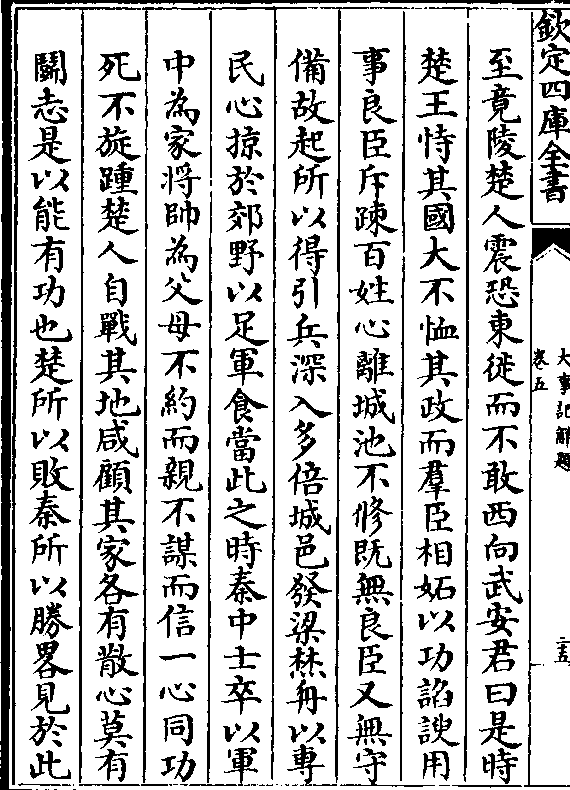 欽定四庫全書
大事記解題
卷五
三五
至竟陵楚人震恐東徙而不敢西向武安君曰是時
楚王恃其國大不恤其政而羣臣相妬以功諂諛用
事良臣斥踈百姓心離城池不修既無良臣又無守
備故起所以得引兵深入多倍城邑發梁焚舟以專
民心掠於郊野以足軍食當此之時秦中士卒以軍
中為家將帥為父母不約而親不謀而信一心同功
死不旋踵楚人自戰其地咸顧其家各有散心莫有
鬬志是以能有功也楚所以敗秦所以勝畧見於此